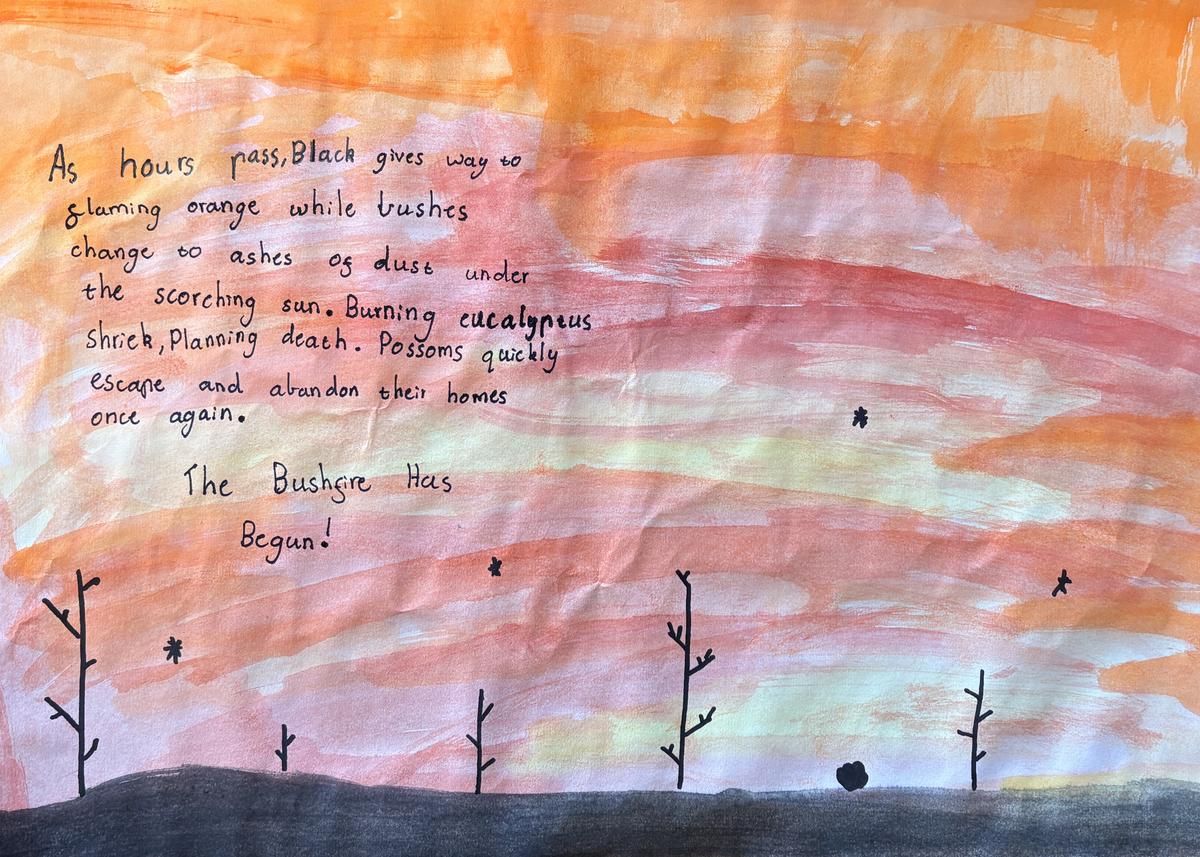 As hours pass, Black gives way to
flaming orange while bushes
change to ashes of dust under
the scorching sun. Burning eucalyptus
shriek, Planning death. Possoms quickly
escape and abandon their homes
once again.
The Bushfire Has
Begun!